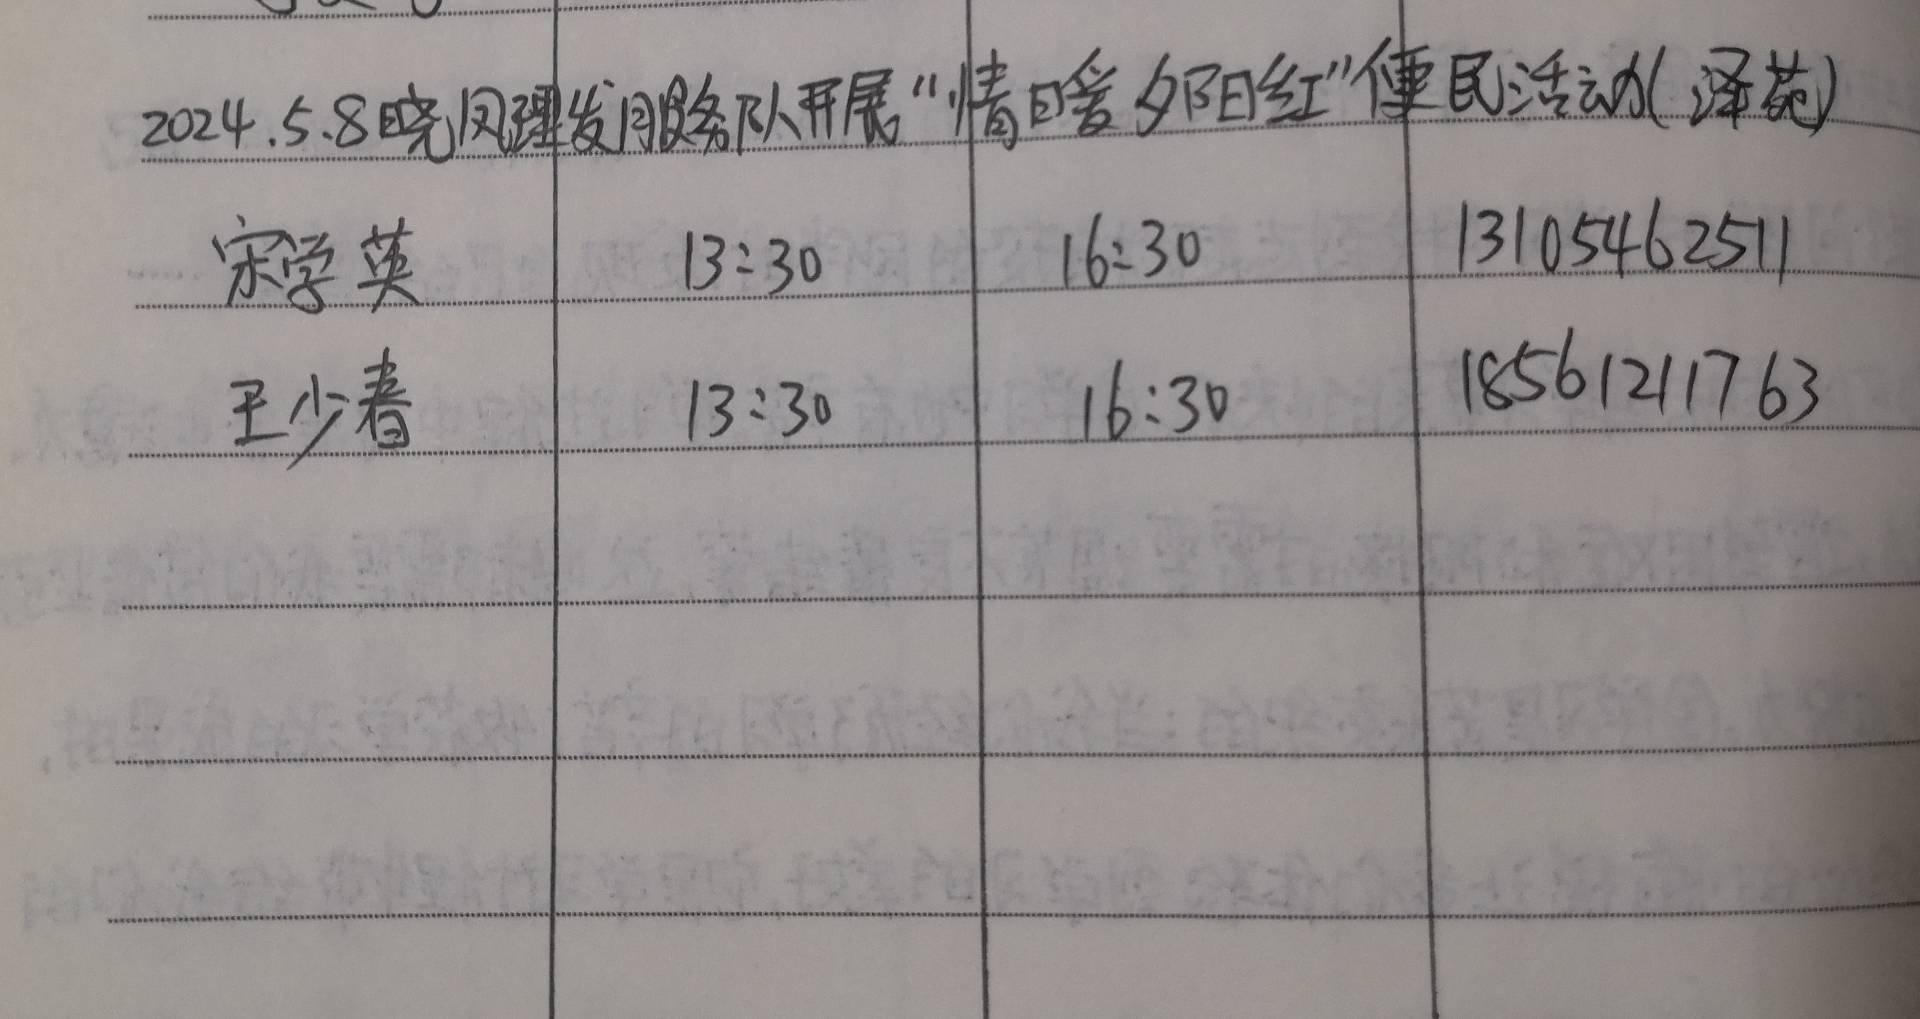 2024.5.8晓凤理发服务队开展“情暖夕阳红”便民活动(泽苑)
宋学英 13:30 16:30 13105462511
王少春 13:30 16:30 18561211763